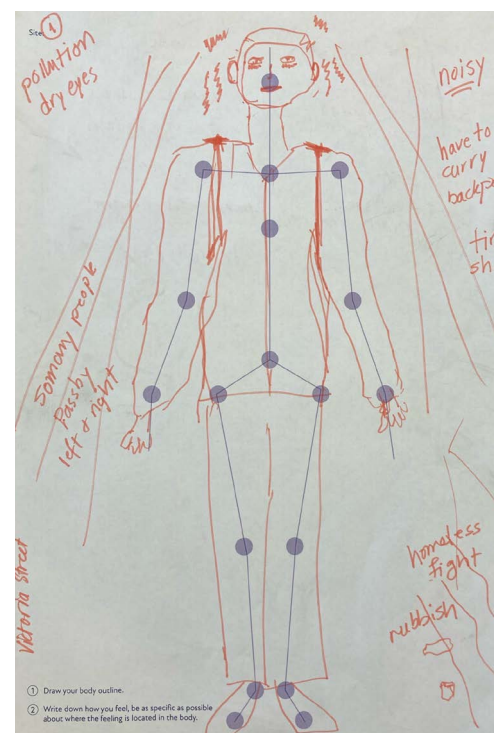 Site: 1
pollution
dry eyes
noisy
have to
curry
backp
tir
sh
somany people
passby
left & right
Victoria Street
homeless
fight
rubbish
1 Draw your body outline.
2 Write down how you feel, be as specific as possible
about where the feeling is located in the body.